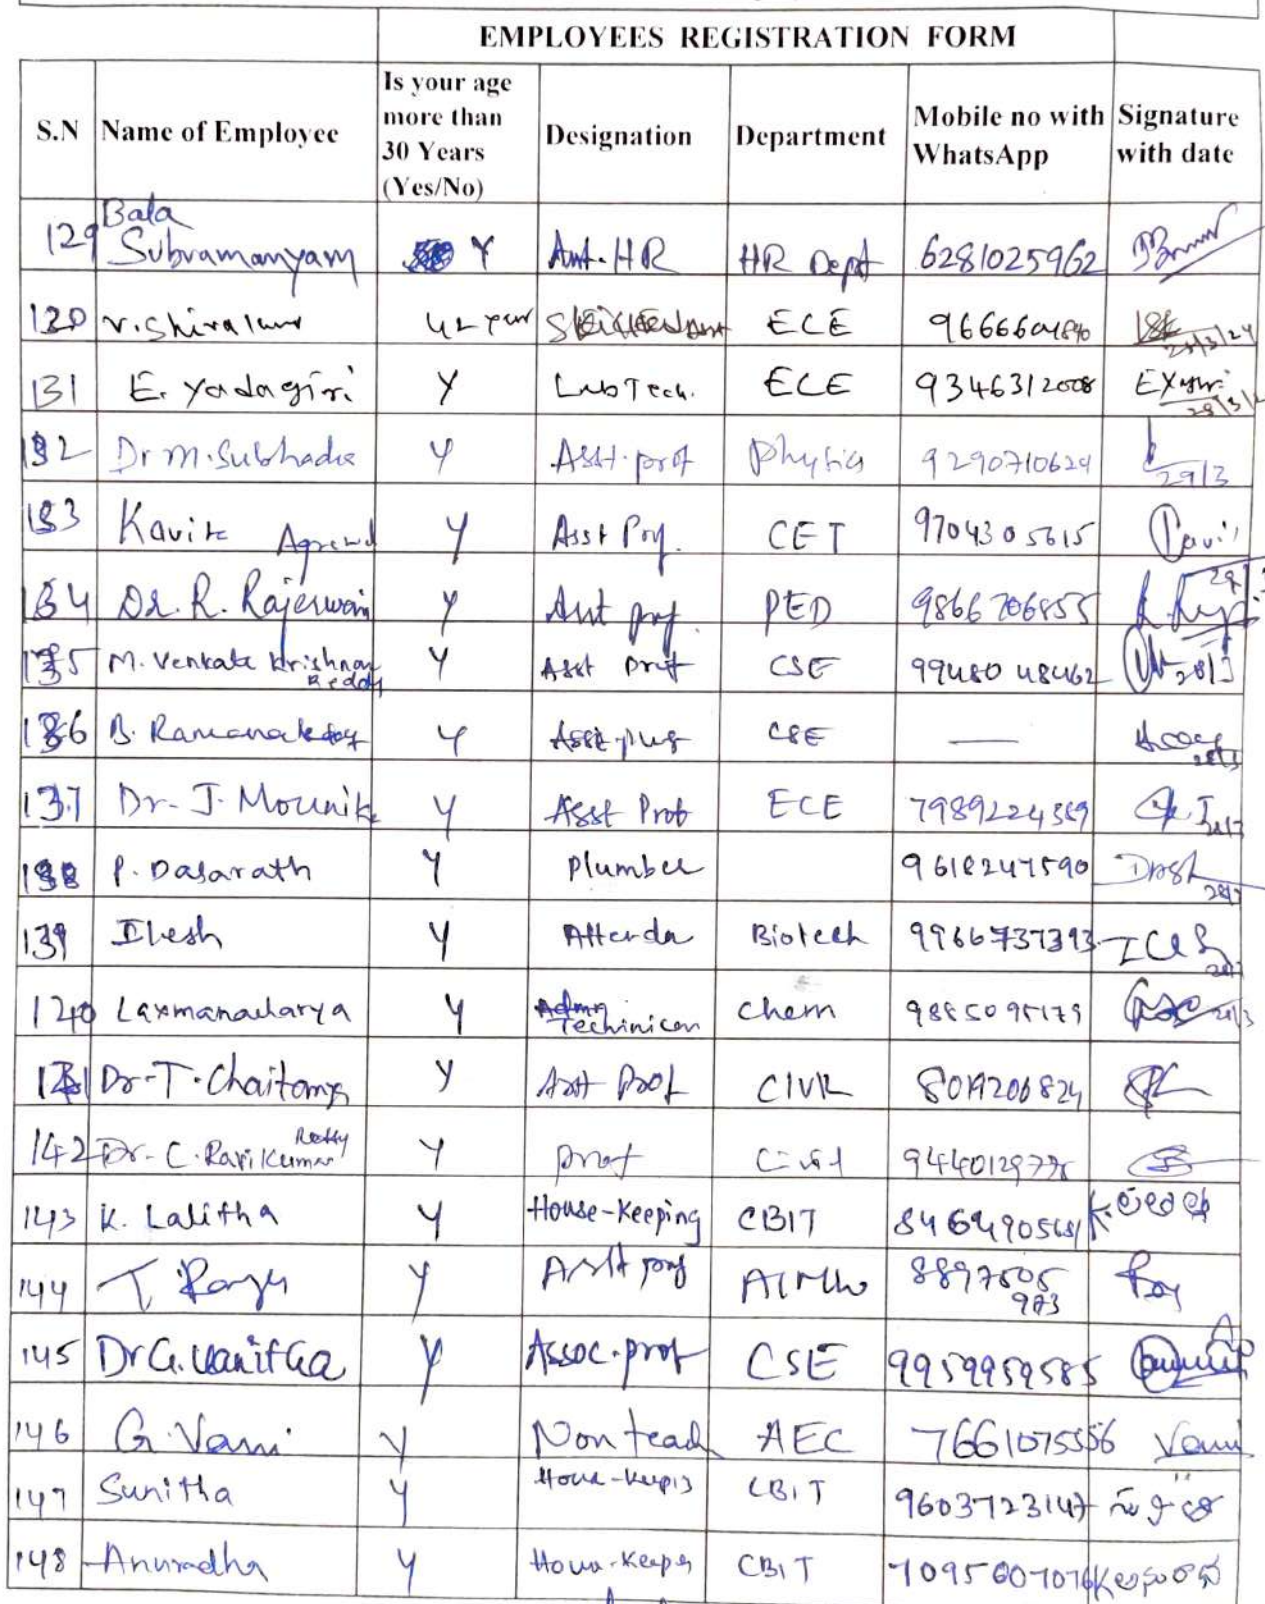 EMPLOYEES REGISTRATION FORM
S.N Name of Employee Is your age more than 30 Years (Yes/No) Designation Department Mobile no with WhatsApp Signature with date
129 Bala Subramanyam Y HR HR Dept 6281025962
130 42 year ECE 28/3/24
131 E. Yadagiri Y Lab Tech. ECE 9346312008 28/3/
132 Dr M. Subhadra Y Asst. prof Physics 9290710624 29/3
133 Kavita Agrawal Y Asst Prof. CET 9704305615
134 Dr. R. Rajeswari Y Asst prof. PED 9866706855
135 M. Venkata Krishna Reddy Y Asst Prof CSE 9948048462 28/3
136 B. Y CSE —
137 Dr. J. Mounika Y Asst Prof ECE 7989224359
138 P. Dasarath Y Plumber 9618247590
139 Ilesh Y Attender Biotech 9966737393
140 Laxmanacharya Y Techinicen Chem 9885095179
141 Dr. T. Chaitanya Y Asst Prof CIVIL 8019206824
142 Dr. C. Ravi Kumar Reddy Y prof Civil
143 K. Lalitha Y House-Keeping CBIT
144 T Y Asst prof 8897505973
145 Dr G. Vanitha Y Assoc. prof CSE 9959959585
146 G. Vani Y Non teach AEC 7661075556 Vani
147 Sunitha Y CBIT 9603723147 సునిత
148 Anuradha Y CBIT 7095607076 K అనురాధ